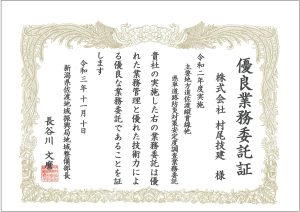 優良業務委託証
株式会社 村尾技建 様
令和二年度実施
主要地方道佐渡縦貫線他
県単道路防災対策安定度調査業務委託
貴社の実施した右の業務委託は優
れた業務管理と優れた技術力によ
る優良な業務委託であることを証
します
令和三年十一月十日
新潟県佐渡地域振興局地域整備部長
長谷川 文廣